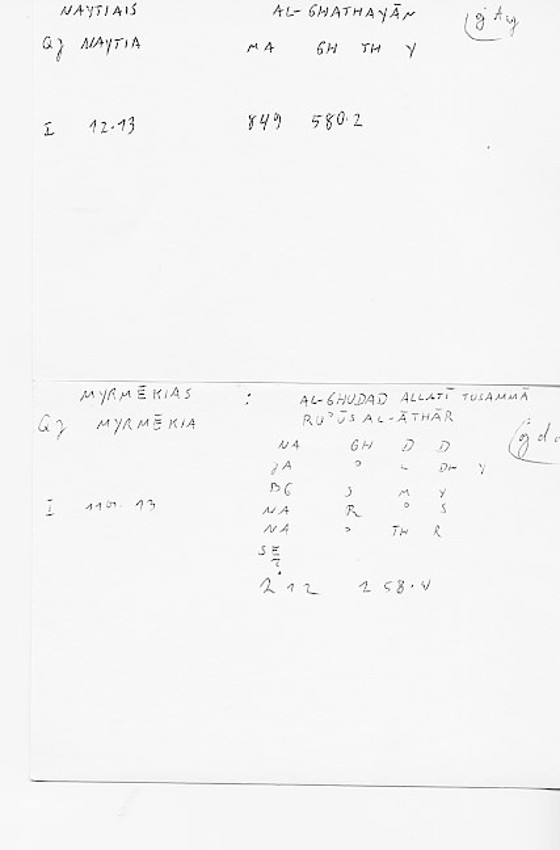 NAYTIAIS AL-GHATHAYĀN
Qz NAYTIA MA GH TH Y
I 12.13 849 580.2
MYRMĒKIAS : AL-GHUDAD ALLATĪ TUSAMMĀ
RUʾŪS AL-ĀTHĀR
Qz MYRMĒKIA
NA GH D D
DH Y
BG S M Y
I NA R S
NA TH R
SE
212 258.4